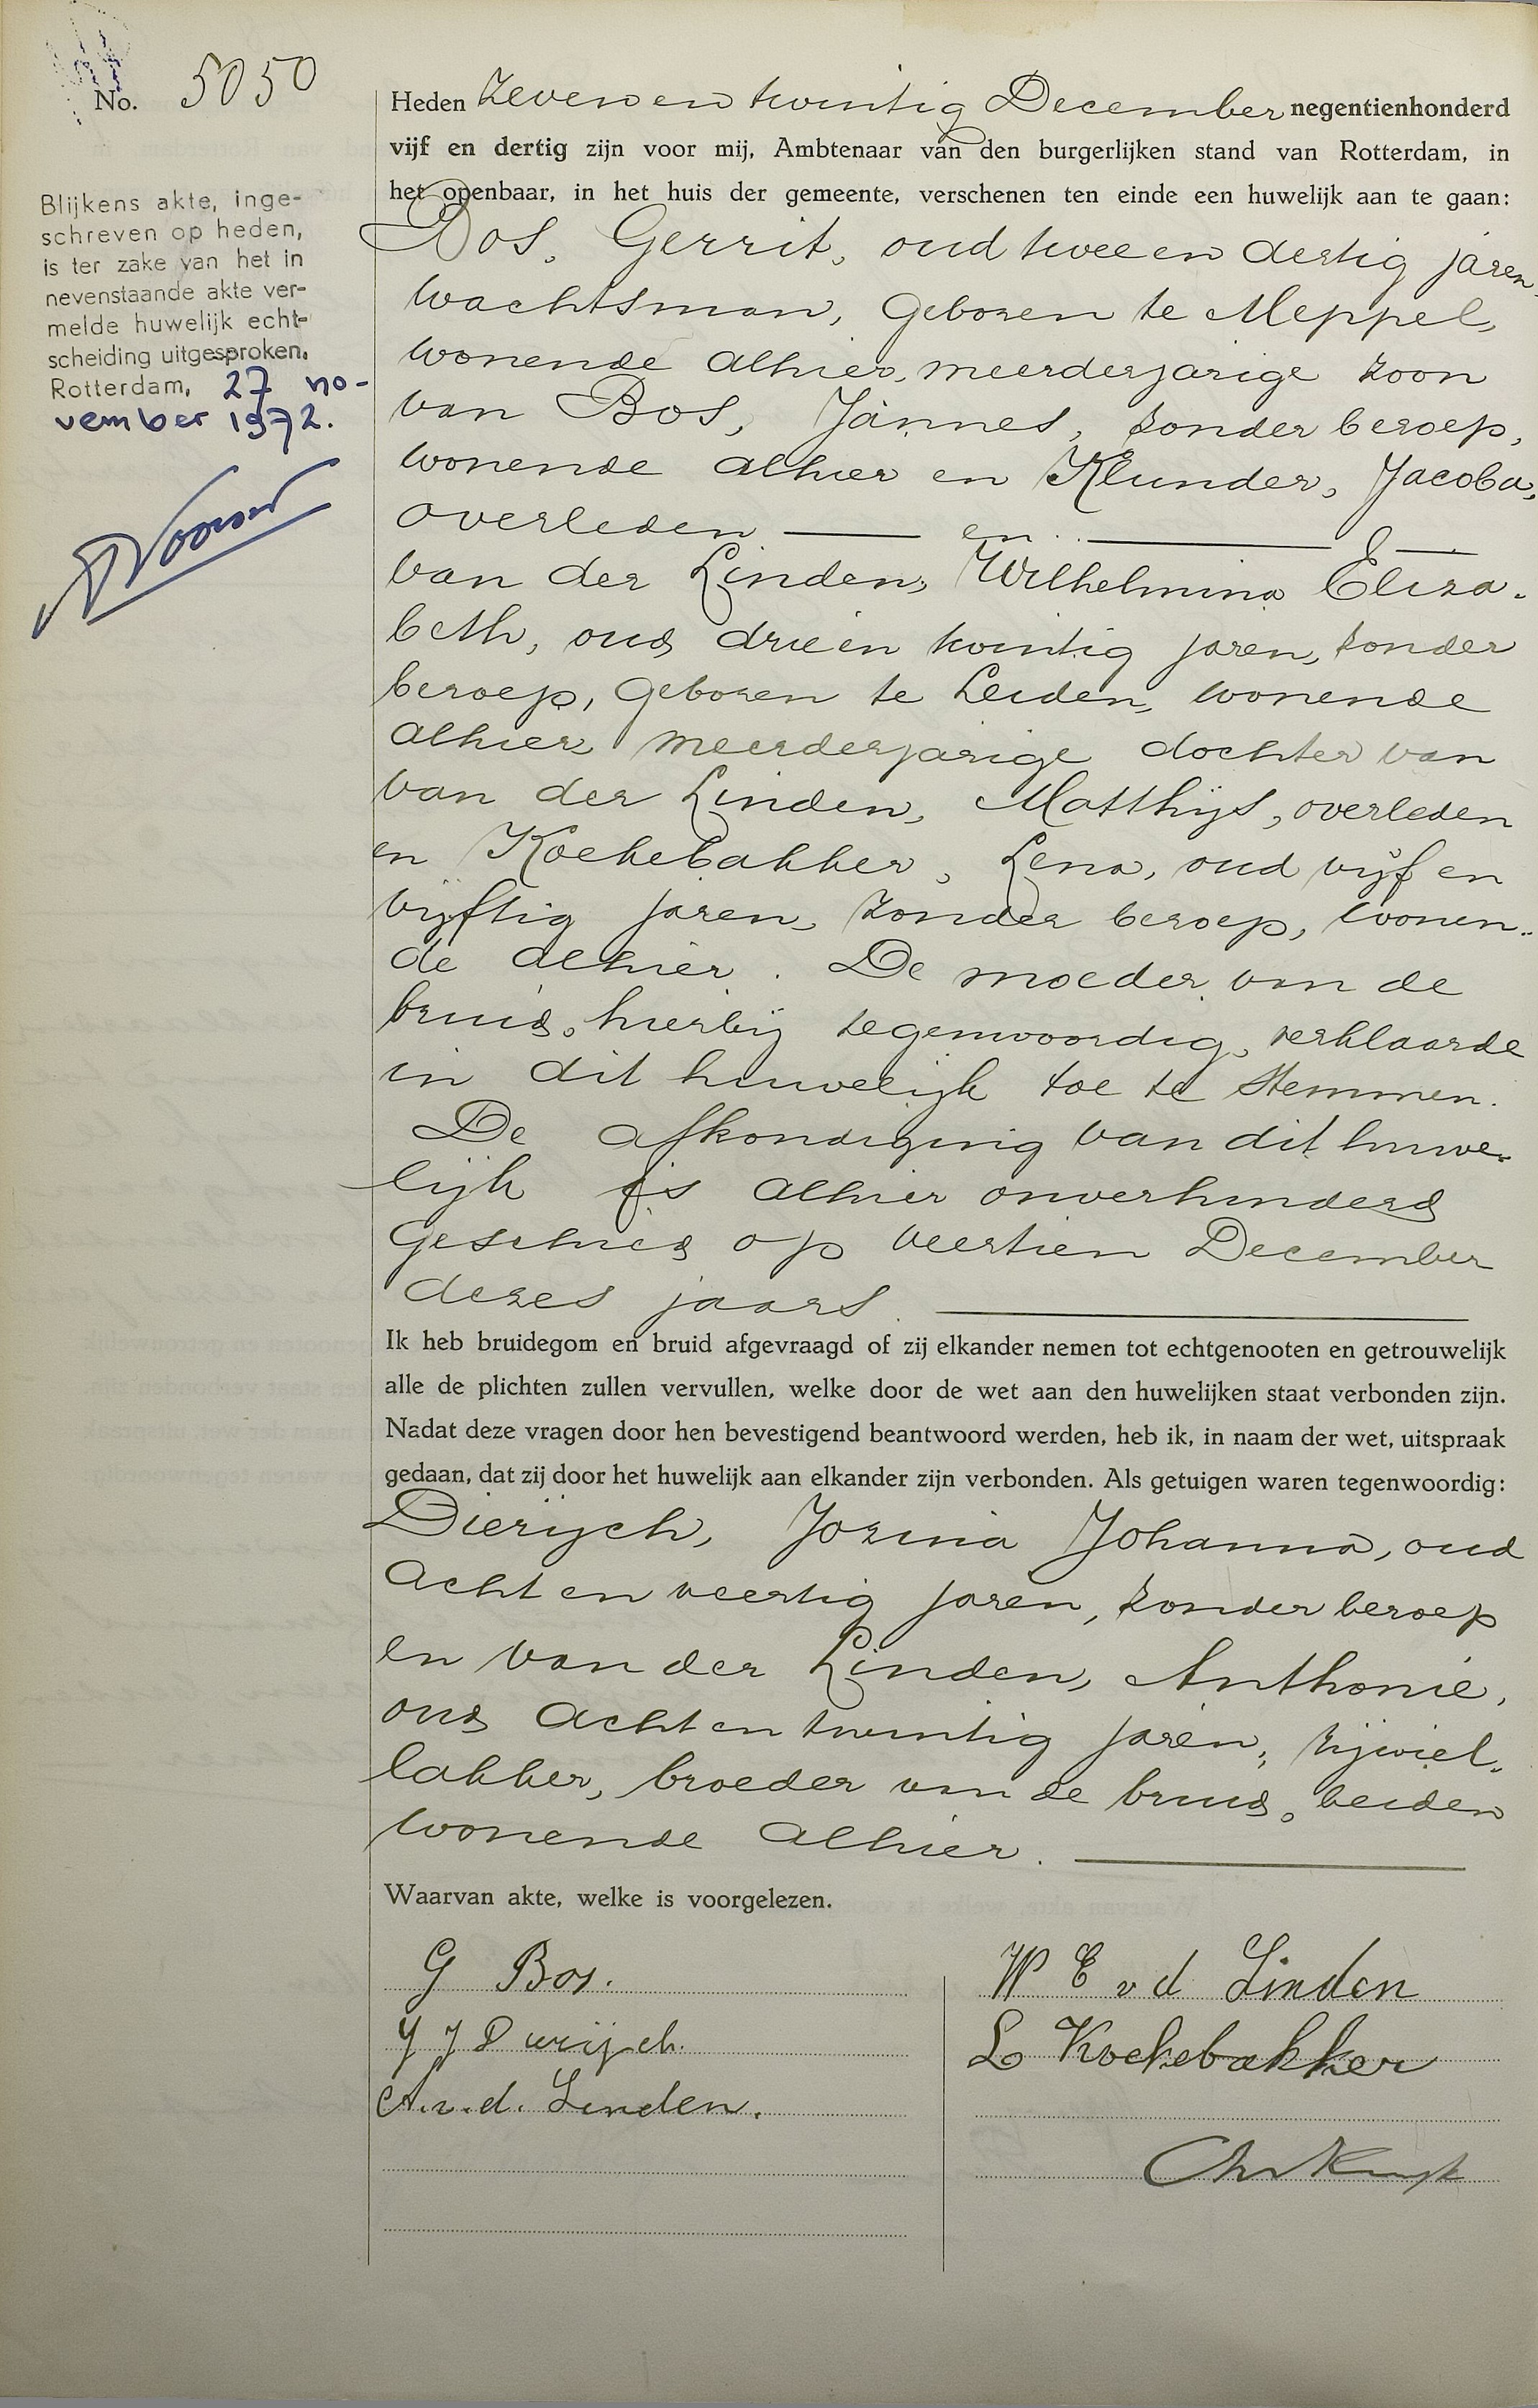 No. 5050
Blijkens akte, inge-
schreven op heden,
is ter zake van het in
nevenstaande akte ver-
melde huwelijk echt-
scheiding uitgesproken.
Rotterdam, 27 no-
vember 1972.
Heden zeven en twintig December negentienhonderd
vijf en dertig zijn voor mij, Ambtenaar van den burgerlijken stand van Rotterdam, in
het openbaar, in het huis der gemeente, verschenen ten einde een huwelijk aan te gaan:
Bos, Gerrit, oud twee en dertig jaren,
wachtsman, geboren te Meppel,
wonende alhier, meerderjarige zoon
van Bos, Jannes, zonder beroep,
wonende alhier en Klunder, Jacoba,
overleden en
van der Linden, Wilhelmina Eliza-
beth, oud drieën twintig jaren, zonder
beroep, geboren te Leiden, wonende
alhier meerderjarige dochter van
van der Linden, Matthijs, overleden
en Koekebakker, Lena, oud vijf en
vijftig jaren, zonder beroep, wonen-
de alhier. De moeder van de
bruid, hierbij tegenwoordig, verklaarde
in dit huwelijk toe te stemmen.
De afkondiging van dit huwe-
lijk is alhier onverhinderd
geschied op veertien December
dezes jaars.
Ik heb bruidegom en bruid afgevraagd of zij elkander nemen tot echtgenooten en getrouwelijk
alle de plichten zullen vervullen, welke door de wet aan den huwelijken staat verbonden zijn.
Nadat deze vragen door hen bevestigend beantwoord werden, heb ik, in naam der wet, uitspraak
gedaan, dat zij door het huwelijk aan elkander zijn verbonden. Als getuigen waren tegenwoordig:
Dierijck, Jozina Johanna, oud
acht en veertig jaren, zonder beroep
en van der Linden, Anthonie,
oud acht en twintig jaren, rijwiel-
lakker, broeder van de bruid, beiden
wonende alhier.
Waarvan akte, welke is voorgelezen.
G Bos. W E v d Linden
J J Dierijck. L Koekebakker
A.v.d. Linden.